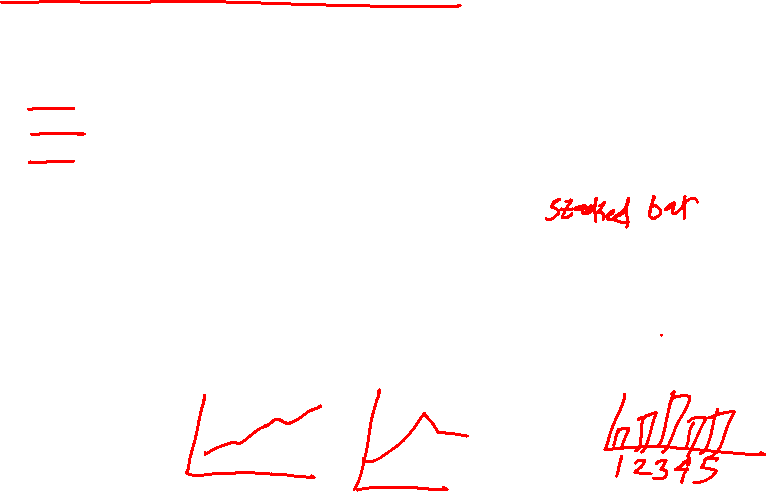 stacked bar
1 2 3 4 5